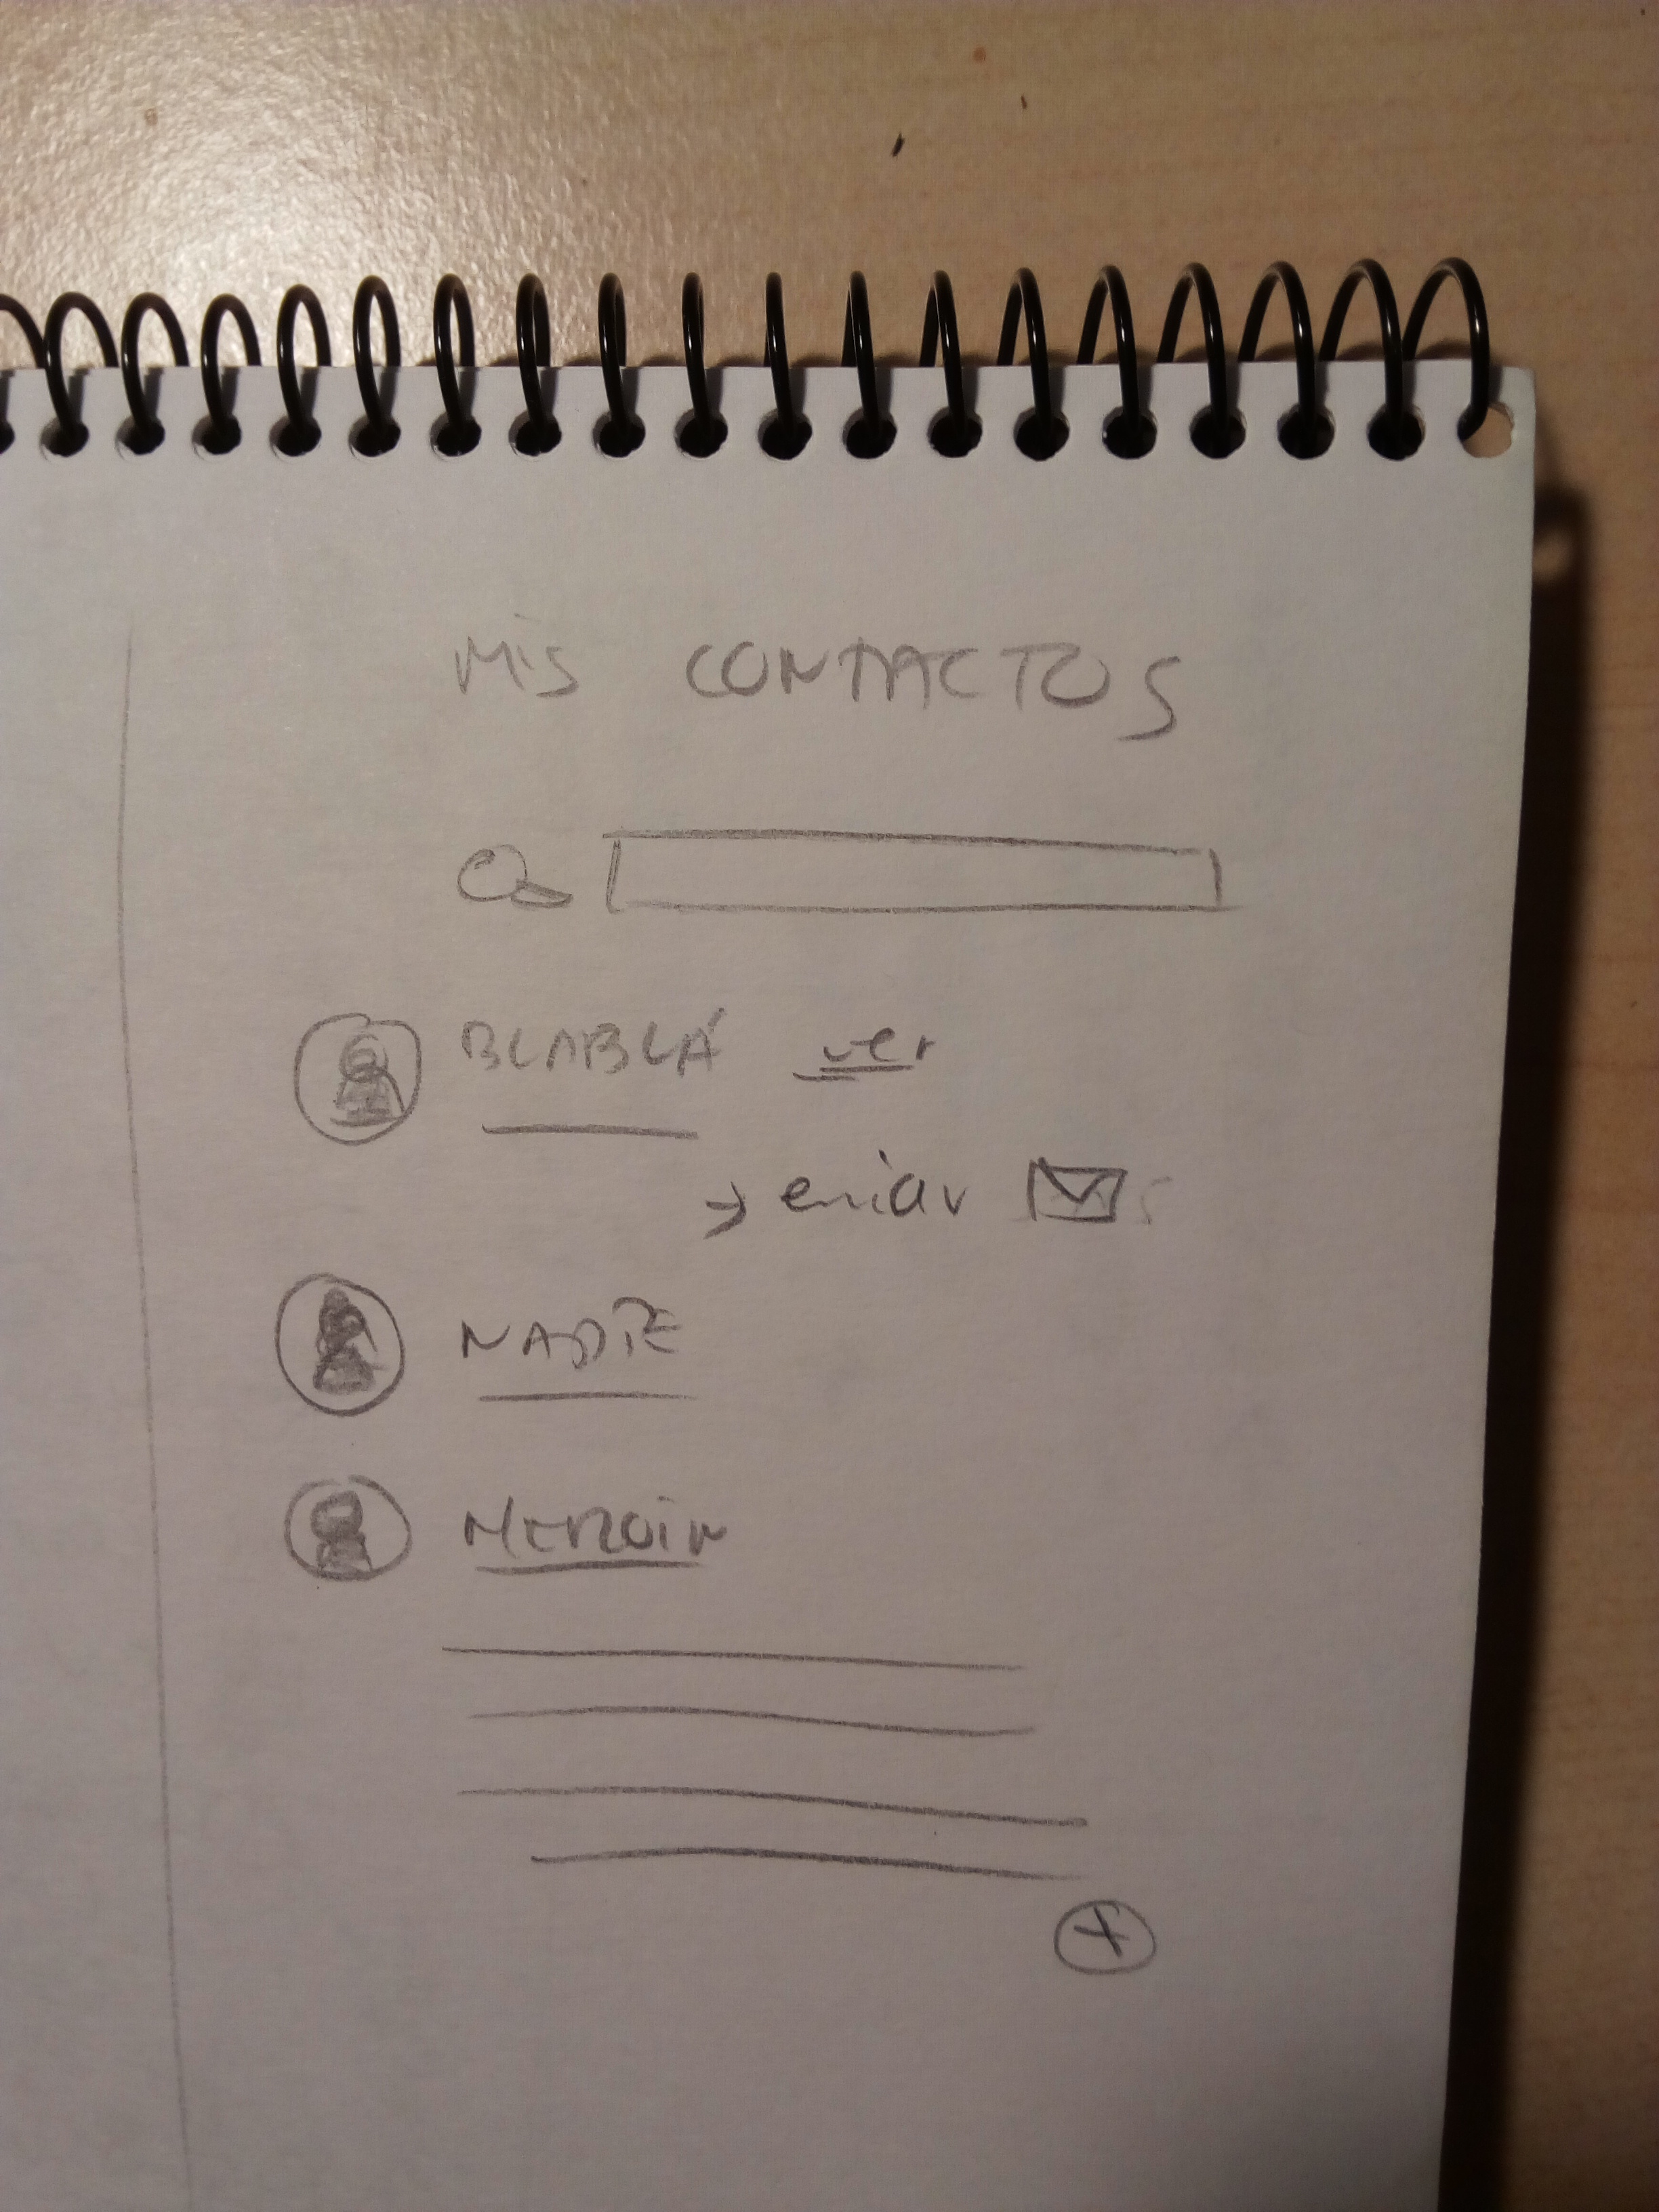 MIS CONTACTOS
BLABLÁ ver
enviar
NADIE